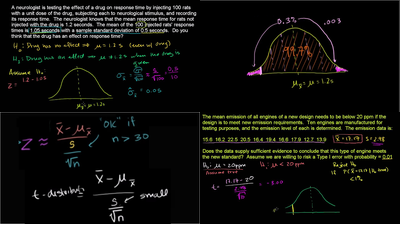 A neurologist is testing the effect of a drug on response time by injecting 100 rats
with a unit dose of the drug, subjecting each to neurological stimulus, and recording
its response time. The neurologist knows that the mean response time for rats not
injected with the drug is 1.2 seconds. The mean of the 100 injected rats' response
times is 1.05 seconds with a sample standard deviation of 0.5 seconds. Do you
think that the drug has an effect on response time?
H₀: Drug has no effect ⇒ μ = 1.2 s (even w/ drug)
H₁: Drug has an effect ⇒ μ ≠ 1.2 s when the drug is given
Assume H₀
μx̄ = μ = 1.2 s
0.3%
.003
99.7%
μx̄ = μ = 1.2 s
Z ≈ x̄ - μx̄ / s/√n
"OK" if
n > 30
t-distribution
x̄ - μx̄ / s/√n
small
The mean emission of all engines of a new design needs to be below 20 ppm if
the design is to meet new emission requirements. Ten engines are manufactured for
testing purposes, and the emission level of each is determined. The emission data is:
15.6 16.2 22.5 20.5 16.4 19.4 16.6 17.9 12.7 13.9
x̄ = 17.17
S = 2.98
Does the data supply sufficient evidence to conclude that this type of engine meets
the new standard? Assume we are willing to risk a Type I error with probability = 0.01
H₀: μ = 20 ppm
H₁: μ < 20 ppm
Reject H₀